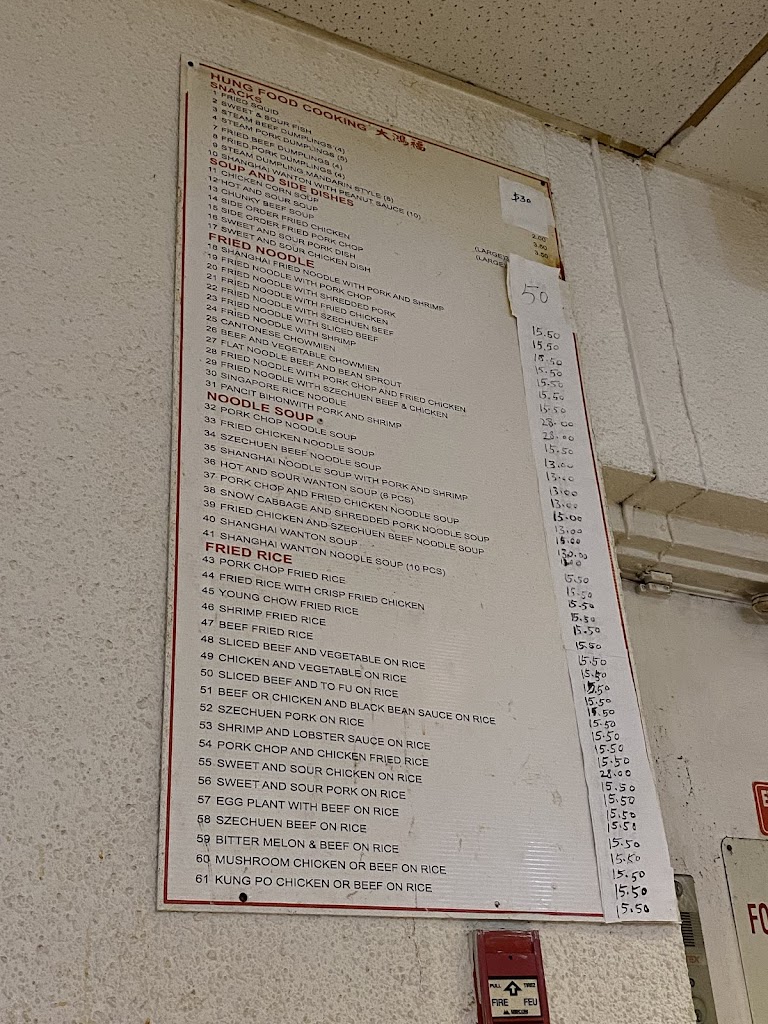 HUNG FOOD COOKING 大鴻福
SNACKS
1 FRIED SQUID
2 SWEET & SOUR FISH
3 STEAM BEEF DUMPLINGS (4)
4 STEAM PORK DUMPLINGS (5)
7 FRIED BEEF DUMPLINGS (4)
8 FRIED PORK DUMPLINGS (4)
9 STEAM DUMPLING MANDARIN STYLE (8)
10 SHANGHAI WANTON WITH PEANUT SAUCE (10)
SOUP AND SIDE DISHES
11 CHICKEN CORN SOUP
12 HOT AND SOUR SOUP
13 CHUNKY BEEF SOUP
14 SIDE ORDER FRIED CHICKEN
15 SIDE ORDER FRIED PORK CHOP
16 SWEET AND SOUR PORK DISH
17 SWEET AND SOUR CHICKEN DISH
FRIED NOODLE
18 SHANGHAI FRIED NOODLE WITH PORK AND SHRIMP
19 FRIED NOODLE WITH PORK CHOP
20 FRIED NOODLE WITH SHREDDED PORK
21 FRIED NOODLE WITH FRIED CHICKEN
22 FRIED NOODLE WITH SZECHUEN BEEF
23 FRIED NOODLE WITH SLICED BEEF
24 FRIED NOODLE WITH SHRIMP
25 CANTONESE CHOWMIEN
26 BEEF AND VEGETABLE CHOWMIEN
27 FLAT NOODLE BEEF AND BEAN SPROUT
28 FRIED NOODLE WITH PORK CHOP AND FRIED CHICKEN
29 FRIED NOODLE WITH SZECHUEN BEEF & CHICKEN
30 SINGAPORE RICE NOODLE
31 PANCIT BIHONWITH PORK AND SHRIMP
NOODLE SOUP
32 PORK CHOP NOODLE SOUP
33 FRIED CHICKEN NOODLE SOUP
34 SZECHUEN BEEF NOODLE SOUP
35 SHANGHAI NOODLE SOUP WITH PORK AND SHRIMP
36 HOT AND SOUR WANTON SOUP (8 PCS)
37 PORK CHOP AND FRIED CHICKEN NOODLE SOUP
38 SNOW CABBAGE AND SHREDDED PORK NOODLE SOUP
39 FRIED CHICKEN AND SZECHUEN BEEF NOODLE SOUP
40 SHANGHAI WANTON SOUP
41 SHANGHAI WANTON NOODLE SOUP (10 PCS)
FRIED RICE
43 PORK CHOP FRIED RICE
44 FRIED RICE WITH CRISP FRIED CHICKEN
45 YOUNG CHOW FRIED RICE
46 SHRIMP FRIED RICE
47 BEEF FRIED RICE
48 SLICED BEEF AND VEGETABLE ON RICE
49 CHICKEN AND VEGETABLE ON RICE
50 SLICED BEEF AND TO FU ON RICE
51 BEEF OR CHICKEN AND BLACK BEAN SAUCE ON RICE
52 SZECHUEN PORK ON RICE
53 SHRIMP AND LOBSTER SAUCE ON RICE
54 PORK CHOP AND CHICKEN FRIED RICE
55 SWEET AND SOUR CHICKEN ON RICE
56 SWEET AND SOUR PORK ON RICE
57 EGG PLANT WITH BEEF ON RICE
58 SZECHUEN BEEF ON RICE
59 BITTER MELON & BEEF ON RICE
60 MUSHROOM CHICKEN OR BEEF ON RICE
61 KUNG PO CHICKEN OR BEEF ON RICE
$30
2.00
(LARGE) 3.50
(LARGE) 3.50
50
15.50
15.50
15.50
15.50
15.50
15.50
15.50
28.00
28.00
15.50
13.00
13.00
13.00
13.00
15.00
13.00
15.00
15.50
15.50
15.50
15.50
15.50
15.50
15.50
15.50
15.50
15.50
15.50
15.50
15.50
15.50
15.50
28.00
15.50
15.50
15.50
15.50
15.50
15.50
15.50
15.50
15.50
PULL TIREZ
FIRE FEU
FO